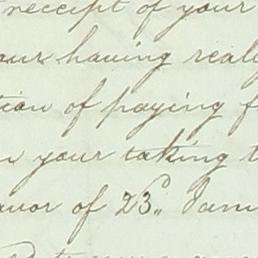 receipt of your
our having real
tion of paying f
your taking t
avor of 23"